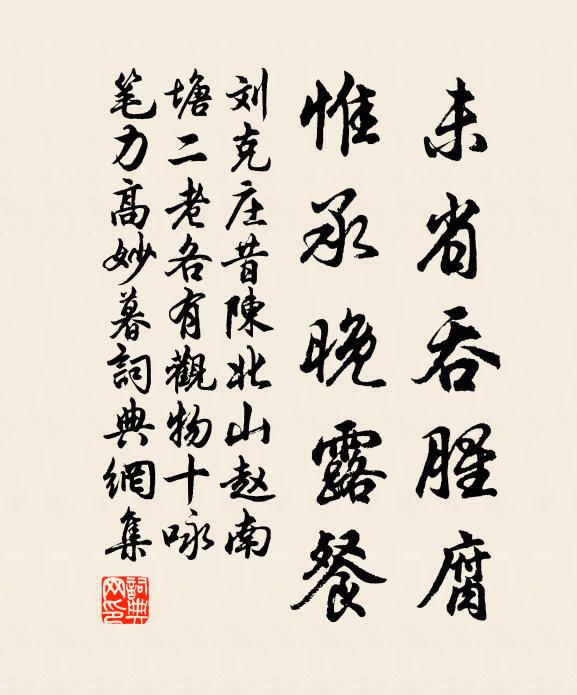 未省吞腥腐
惟承晚露餐
刘克庄昔陳北山赵南
塘二老各有觀物十咏
笔力高妙暮詞典網集
詞典网印